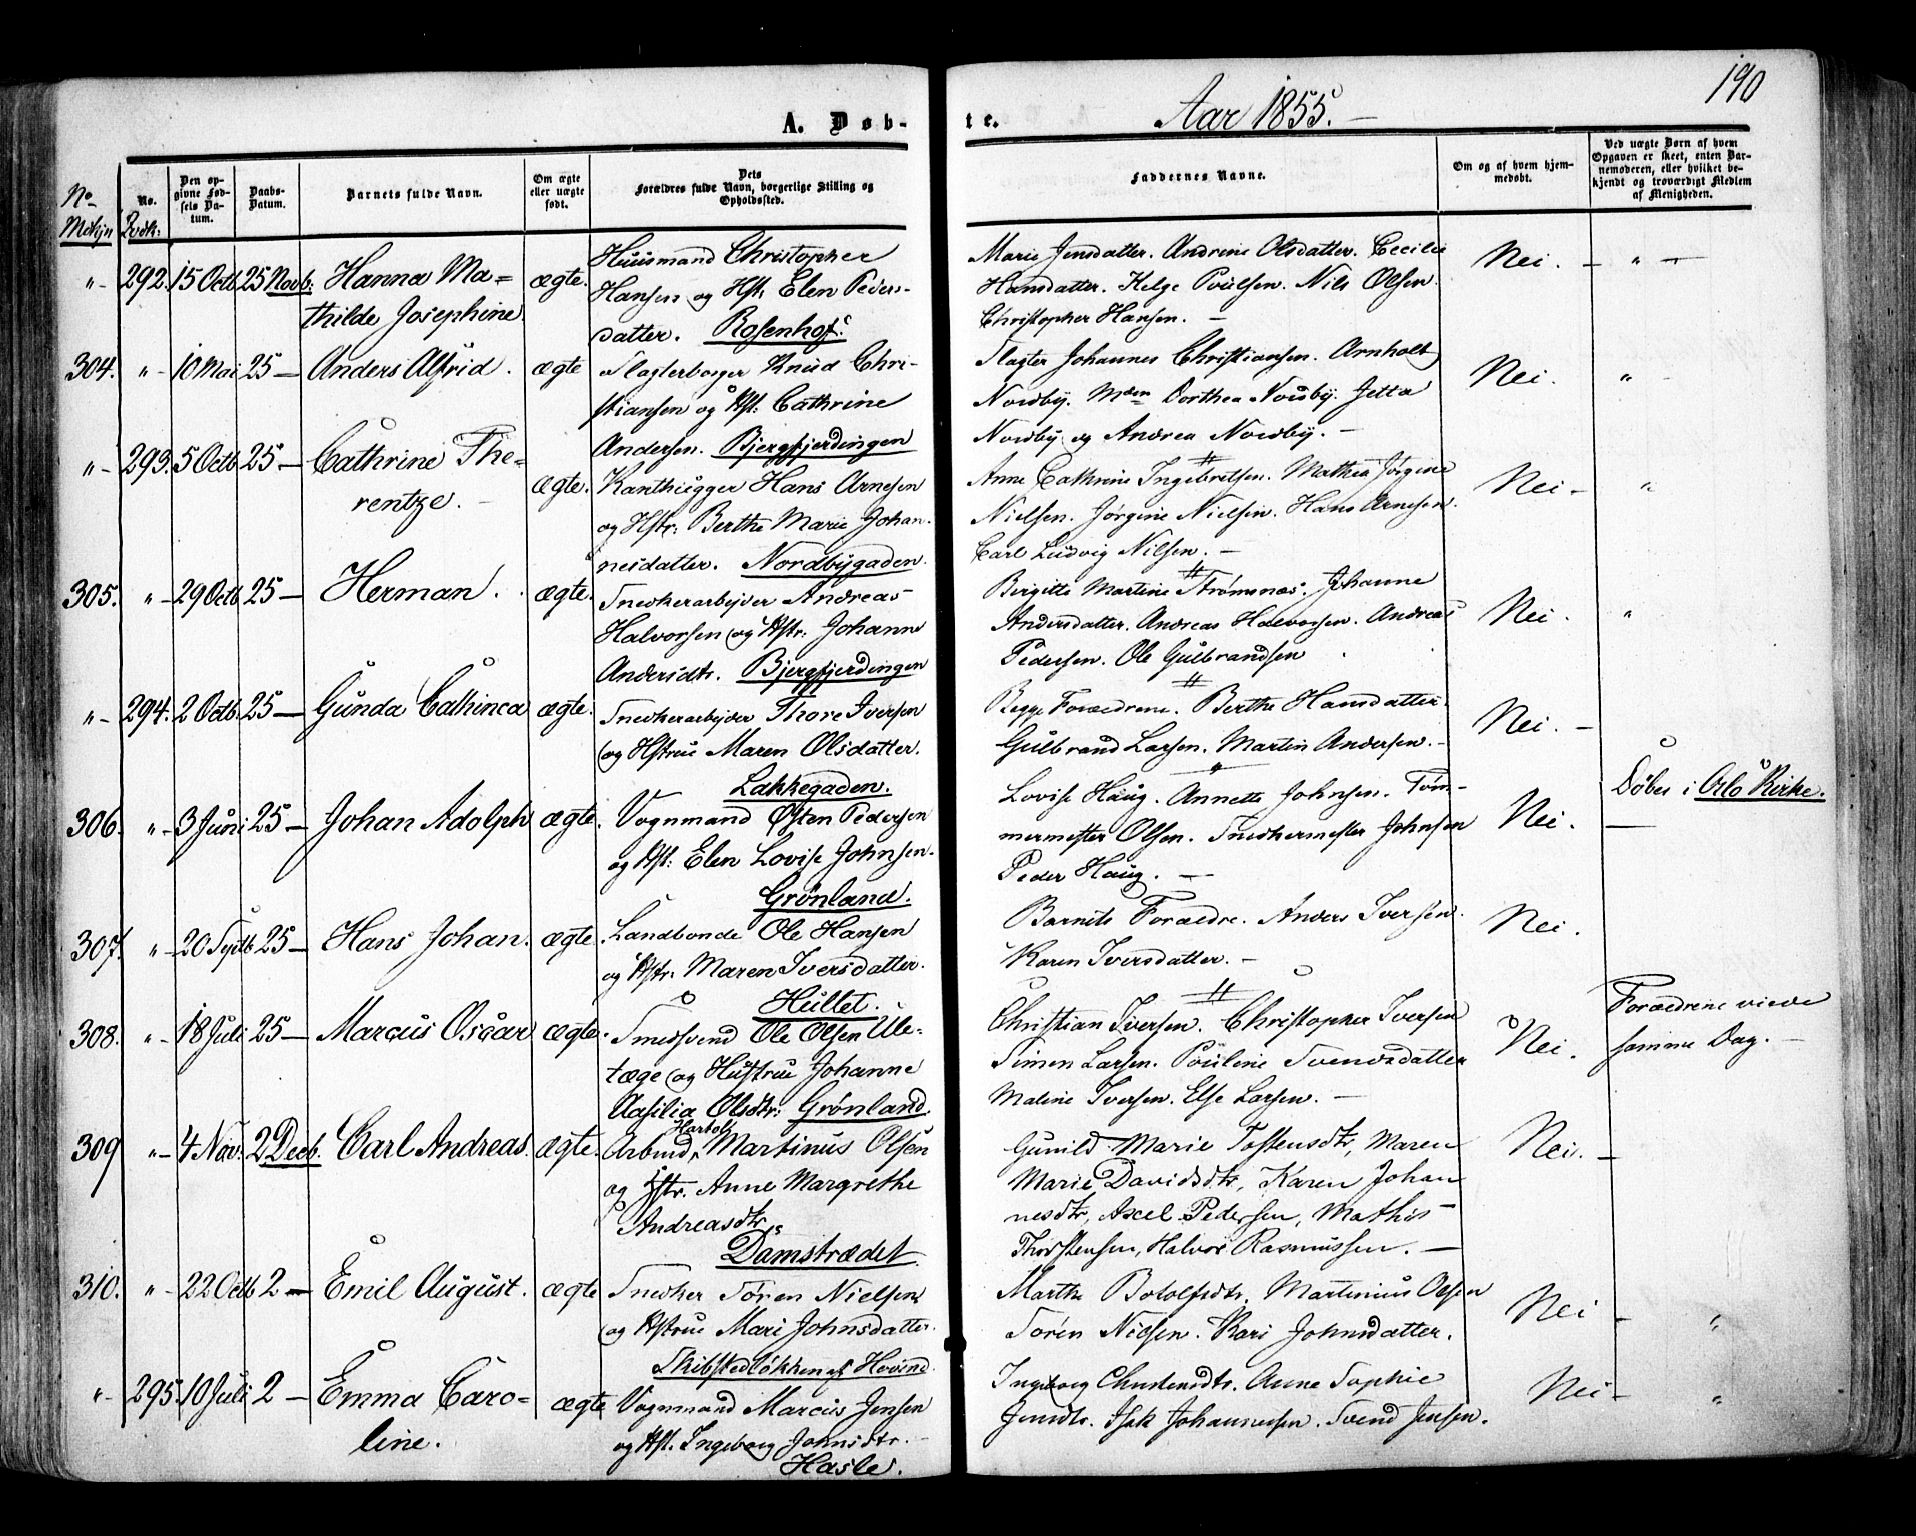 190
A. Døb-
te.
Aar 1855. —
No
Mdkjn
No.
Qvdk:
Den op-
givne Fød-
sels Da-
tum.
Daabs-
Datum.
Barnets fulde Navn.
Om ægte
eller uægte
født.
Dets
Forældres fulde Navn, borgerlige Stilling og
Opholdssted.
Faddernes Navne.
Om og af hvem hjem-
medøbt.
Ved uægte Børn af hvem
Opgaven er skeet, enten Bar-
nemoderen, eller hvilket be-
kjendt og troværdigt Medlem
af Menigheden.
" - 292. 15 Octb 25 Novb: Hanna Ma-
thilde Josephine.
ægte.
Huusmand Christopher
Hansen og Hst: Elen Peders-
datter. Rosenhof.
Marie Jensdatter. Andrine Olsdatter. Cecilie
Hansdatter. Helge Poulsen. Nils Olsen.
Christopher Hansen. —
Nei. — " —
304. " - 10 Mai 25 — Anders Alfrid.
ægte
Slagterborger Knud Chri-
stiansen og Hst: Cathrine
Andersen. Bjergfjerdingen
Slagter Johannes Christiansen. Arnholt
Nordby. Mdm Dorthea Nordby. Jetta
Nordby og Andrea Nordby. —
Nei. "
" - 293. 5 Octb 25 — Cathrine The-
rentze. —
ægte.
Kanthugger Hans Arnesen
og Hstr: Berthe Marie Johan-
nesdatter. Nordbygaden.
Anne Cathrine Ingebretsen. Mathea Jørgine
Nielsen. Jørgine Nielsen. Hans Arnesen.
Carl Ludvig Nilsen. —
Nei — "
305. " - 29 Octb 25 — Herman.
ægte.
Snedkerarbejder Andreas
Halvorsen og Hstr: Johanne
Andersdtr. Bjergfjerdingen
Birgitte Martine Strømnæs. Johanne
Andersdatter. Andreas Halvorsen. Andreas
Pedersen. Ole Gulbrandsen
Nei. "
" - 294. 2 Octb. 25 — Gunda Cathinca
ægte.
Snedkerarbejder Thore Iversen
og Hstrue Maren Olsdatter.
Lakkegaden.
Begge Forældrene. Berthe Hansdatter.
Gulbrand Larsen. Martin Andersen. —
Nei. —
306. " - 3 Juni 25 — Johan Adolph
ægte.
Vognmand Østen Pedersen
og Hst: Elen Lovise Johnsen.
Grønland.
Lovise Haug. Annette Johnsen. Tøm-
mermester Olsen. Snedkermester Johnsen
Peder Haug. —
Nei. —
Døbes i Oslo Kirke.
307. " - 20 Septb 25 — Hans Johan.
ægte.
Landbonde Ole Hansen
og Hstr: Maren Iversdatter.
Hullet.
Barnets Forældre. Anders Iversen.
Karen Iversdatter. —
Nei.
308. " - 18 Juli 25 — Marcus Oscar
ægte.
Smedsvend Ole Olsen Ule-
tæge og Hustrue Johanne
Aasilia Olsdtr: Grønland.
Christian Iversen. Christopher Iversen
Simen Larsen. Pouline Svendsdatter
Maline Iversen. Else Larsen. —
Nei.
Forældrene viede
samme Dag. —
309 " - 4 Nov: 2 Decb. Carl Andreas.
ægte.
Arbmd, Martinus Olsen
og Hstr. Anne Margrethe
Andreasdtr.
Damstrædet
Gunild Marie Tostensdtr, Maren
Marie Davidsdtr, Karen Johan
nesdtr, Axcel Pedersen, Mathis
Thorstensen, Halvor Rasmussen. —
Nei. —
310. " - 22 Octb 2 — Emil August.
ægte
Snedker Søren Nielsen
og Hstrue Mari Johnsdatter.
Skibstedløkken af Hovind.
Marthe Botolfsdtr. Martinius Olsen
Søren Nielsen. Kari Johnsdatter.
Nei — "
" - 295. 10 Juli 2 — Emma Caro-
line.
ægte
Vognmand Marcus Jensen
og Hst. Ingeborg Johnsdtr. —
Hasle.
Ingeborg Christensdtr. Anne Sophie
Jensdtr. Isak Johannessen. Svend Jensen.
Nei — "